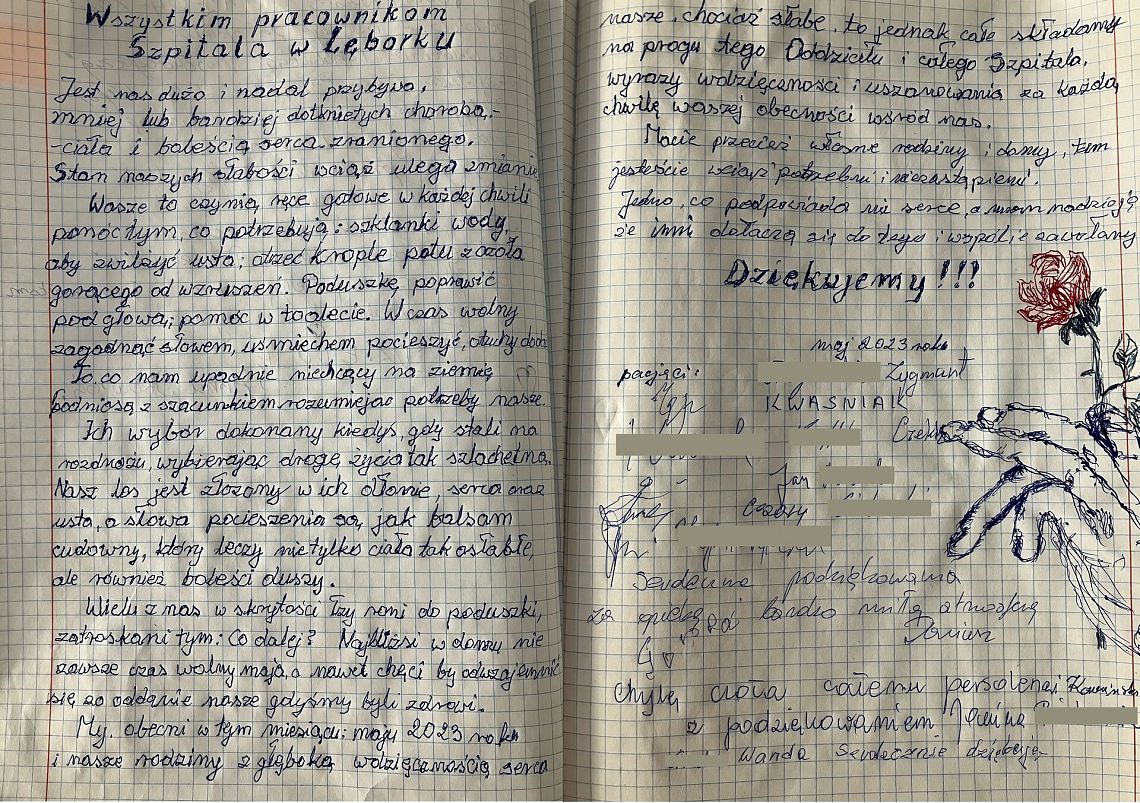 Wszystkim pracownikom
Szpitala w Lęborku
Jest nas dużo i nadal przybywa,
mniej lub bardziej dotkniętych chorobą,-
-ciała i boleścią serca zranionego.
Stan naszych słabości wciąż ulega zmianie
Wasze to czynią ręce gotowe w każdej chwili
pomóc tym, co potrzebują: szklanki wody,
aby zwilżyć usta; otrzeć krople potu z czoła
gorącego od wzruszeń. Poduszkę poprawić
pod głową; pomóc w toalecie. W czas wolny
zagadnąć słowem, uśmiechem pocieszyć, otuchy dodać
To, co nam upadnie niechcący na ziemię
podniosą z szacunkiem rozumiejąc potrzeby nasze.
Ich wybór dokonany kiedyś, gdy stali na
rozdrożu, wybierając drogę życia tak szlachetną.
Nasz los jest złożony w ich dłonie, serca oraz
usta, a słowa pocieszenia są, jak balsam
cudowny, który leczy nie tylko ciała tak osłabłe,
ale również boleści duszy.
Wielu z nas w skrytości łzy roni do poduszki,
zatroskani tym: Co dalej? Najbliżsi w domu nie
zawsze czas wolny mają, a nawet chęci by odwzajemnić
się za oddanie nasze gdyśmy byli zdrowi.
My, obecni w tym miesiącu: maju 2023 roku
i nasze rodziny z głęboką wdzięcznością serca
nasze, chociaż słabe, to jednak całe składamy
na progu tego Oddziału i całego Szpitala,
wyrazy wdzięczności i uszanowania za każdą
chwilę waszej obecności wśród nas.
Macie przecież własne rodziny i domy, tam
jesteście wciąż potrzebni i niezastąpieni.
Jedno, co podpowiada mi serce, a mam nadzieję
że inni dołączą się do tego i wspólnie zawołamy
Dziękujemy!!!
maj 2023 roku
pacjęci:
Zygmunt
KWAŚNIAK
Jan
Cezary
Serdeczne podziękowania
za opiekę i bardzo miłą atmosferę
Dariusz
Chylę czoła całemu personelowi
z podziękowaniem Janina
Wanda Serdecznie dziękuję